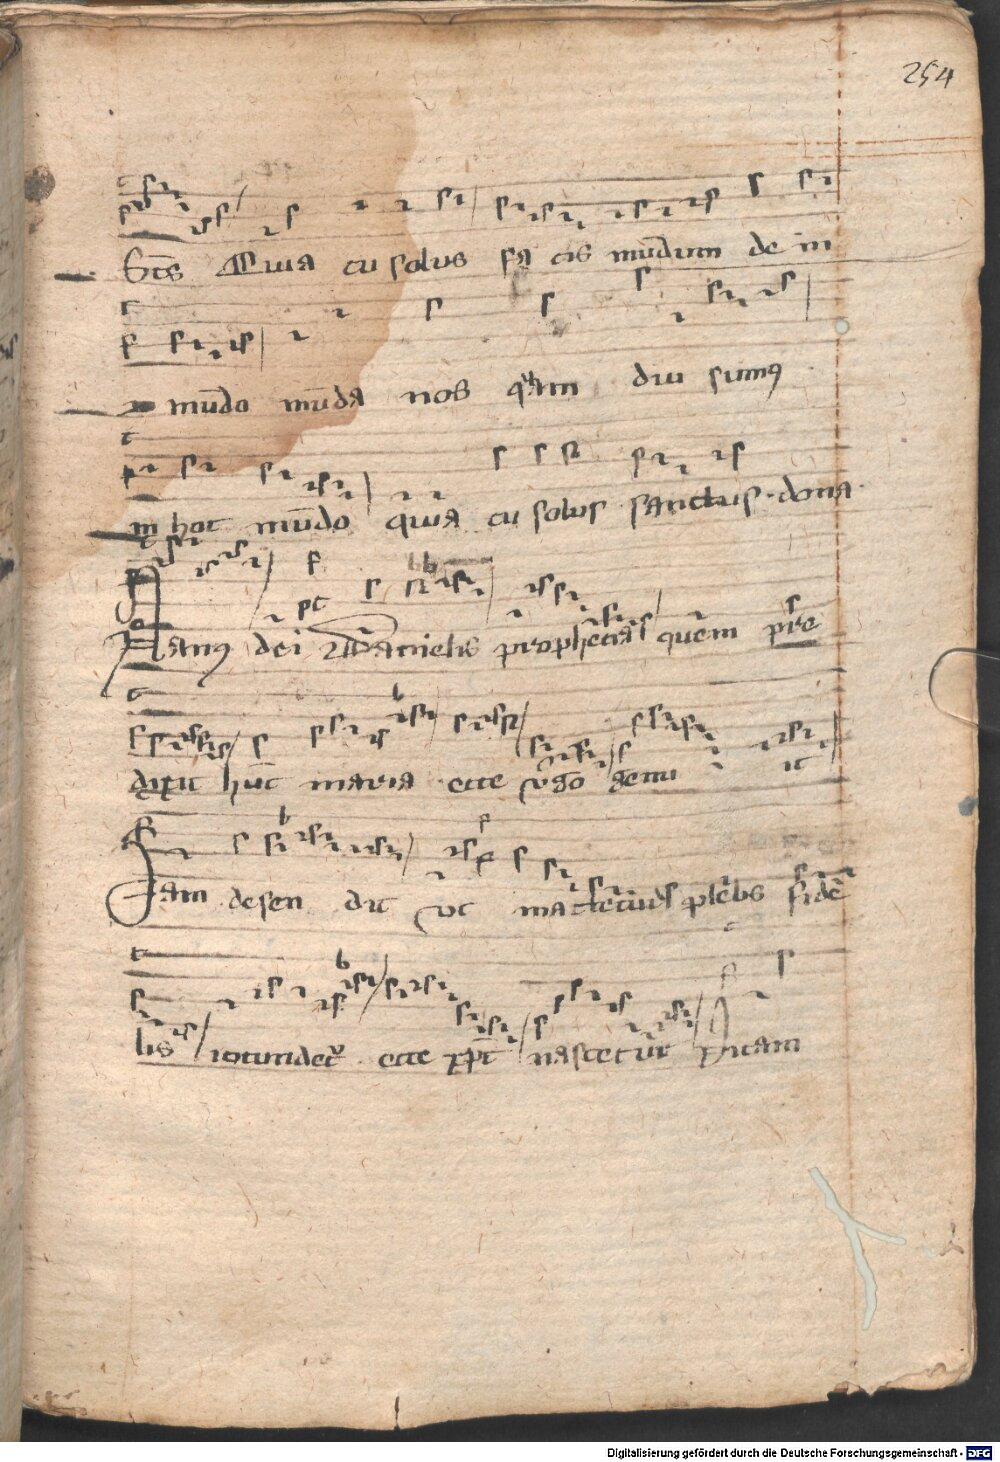 254
Sctˉs Quia tu solus fa cis mūdum de in
mūdo mūda nos qͣm diu sumꝰ
in hoc mūdo quia tu solus sanctus dona
Manꝰ dei Danielis prophetias quem pre
dixit hūc maria ecce v̾go genu it
Iam desen dit vt mattetius plebs fide
lis iocundetᷣ ecce xp̄c nascetur
Digitalisierung gefördert durch die Deutsche Forschungsgemeinschaft - DFG